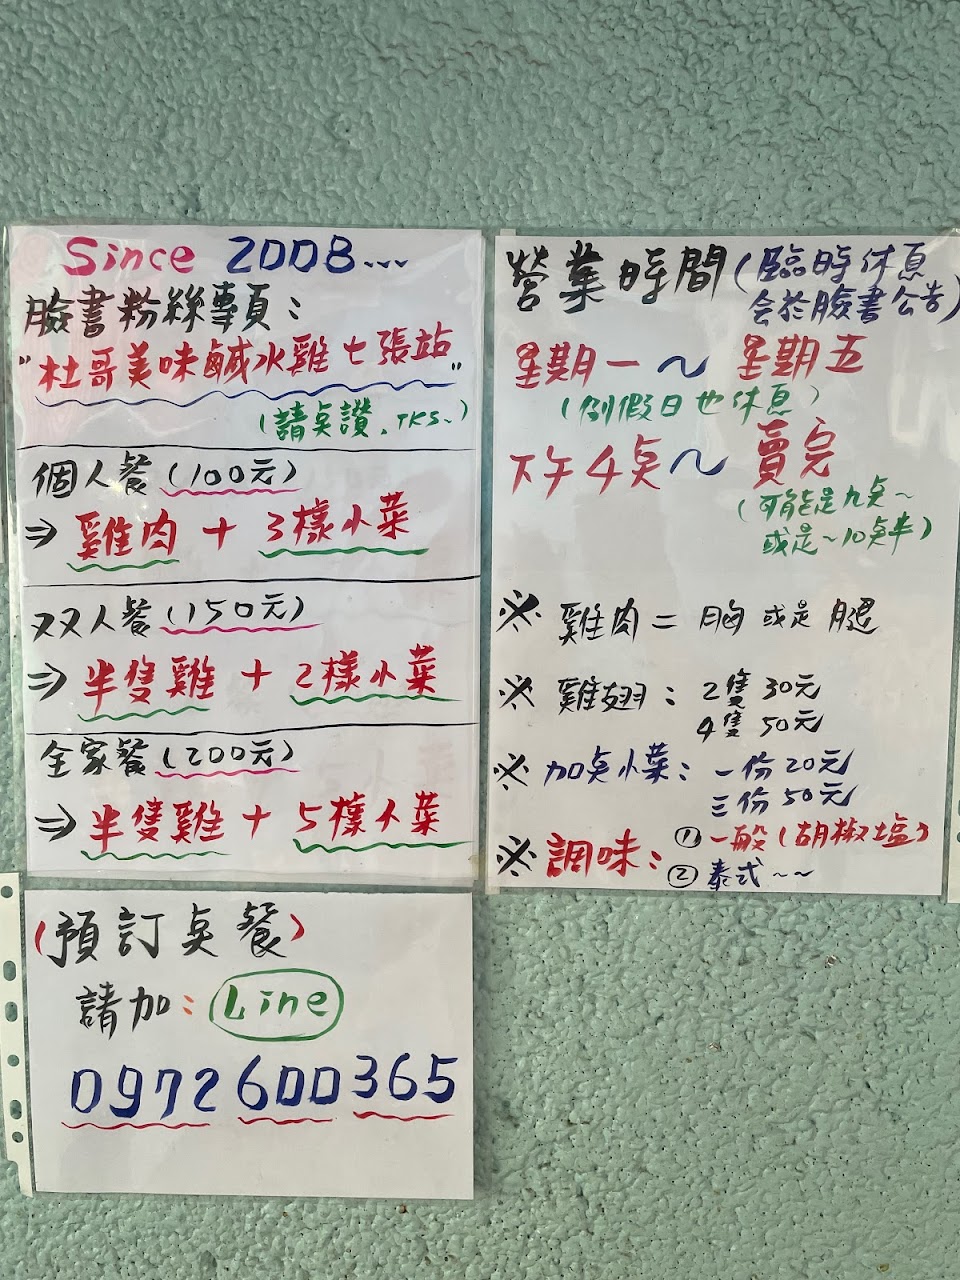 Since 2008~~~
臉書粉絲專頁：
"杜哥美味鹹水雞七張站"
(請点讚、TKS~)
個人餐(100元)
⇒ 雞肉 + 3樣小菜
双人餐(150元)
⇒ 半隻雞 + 2樣小菜
全家餐(200元)
⇒ 半隻雞 + 5樣小菜
(預訂点餐)
請加：Line
0972600365
營業時間(臨時休息
会於臉書公告)
星期一～星期五
(例假日也休息)
下午4点～賣完
(可能是九点~
或是~10点半)
※ 雞肉 = 胸 或是 腿
※ 雞翅： 2隻 30元
4隻 50元
※ 加点小菜： 一份20元
三份50元
※ 調味： ① 一般(胡椒塩)
② 泰式~~